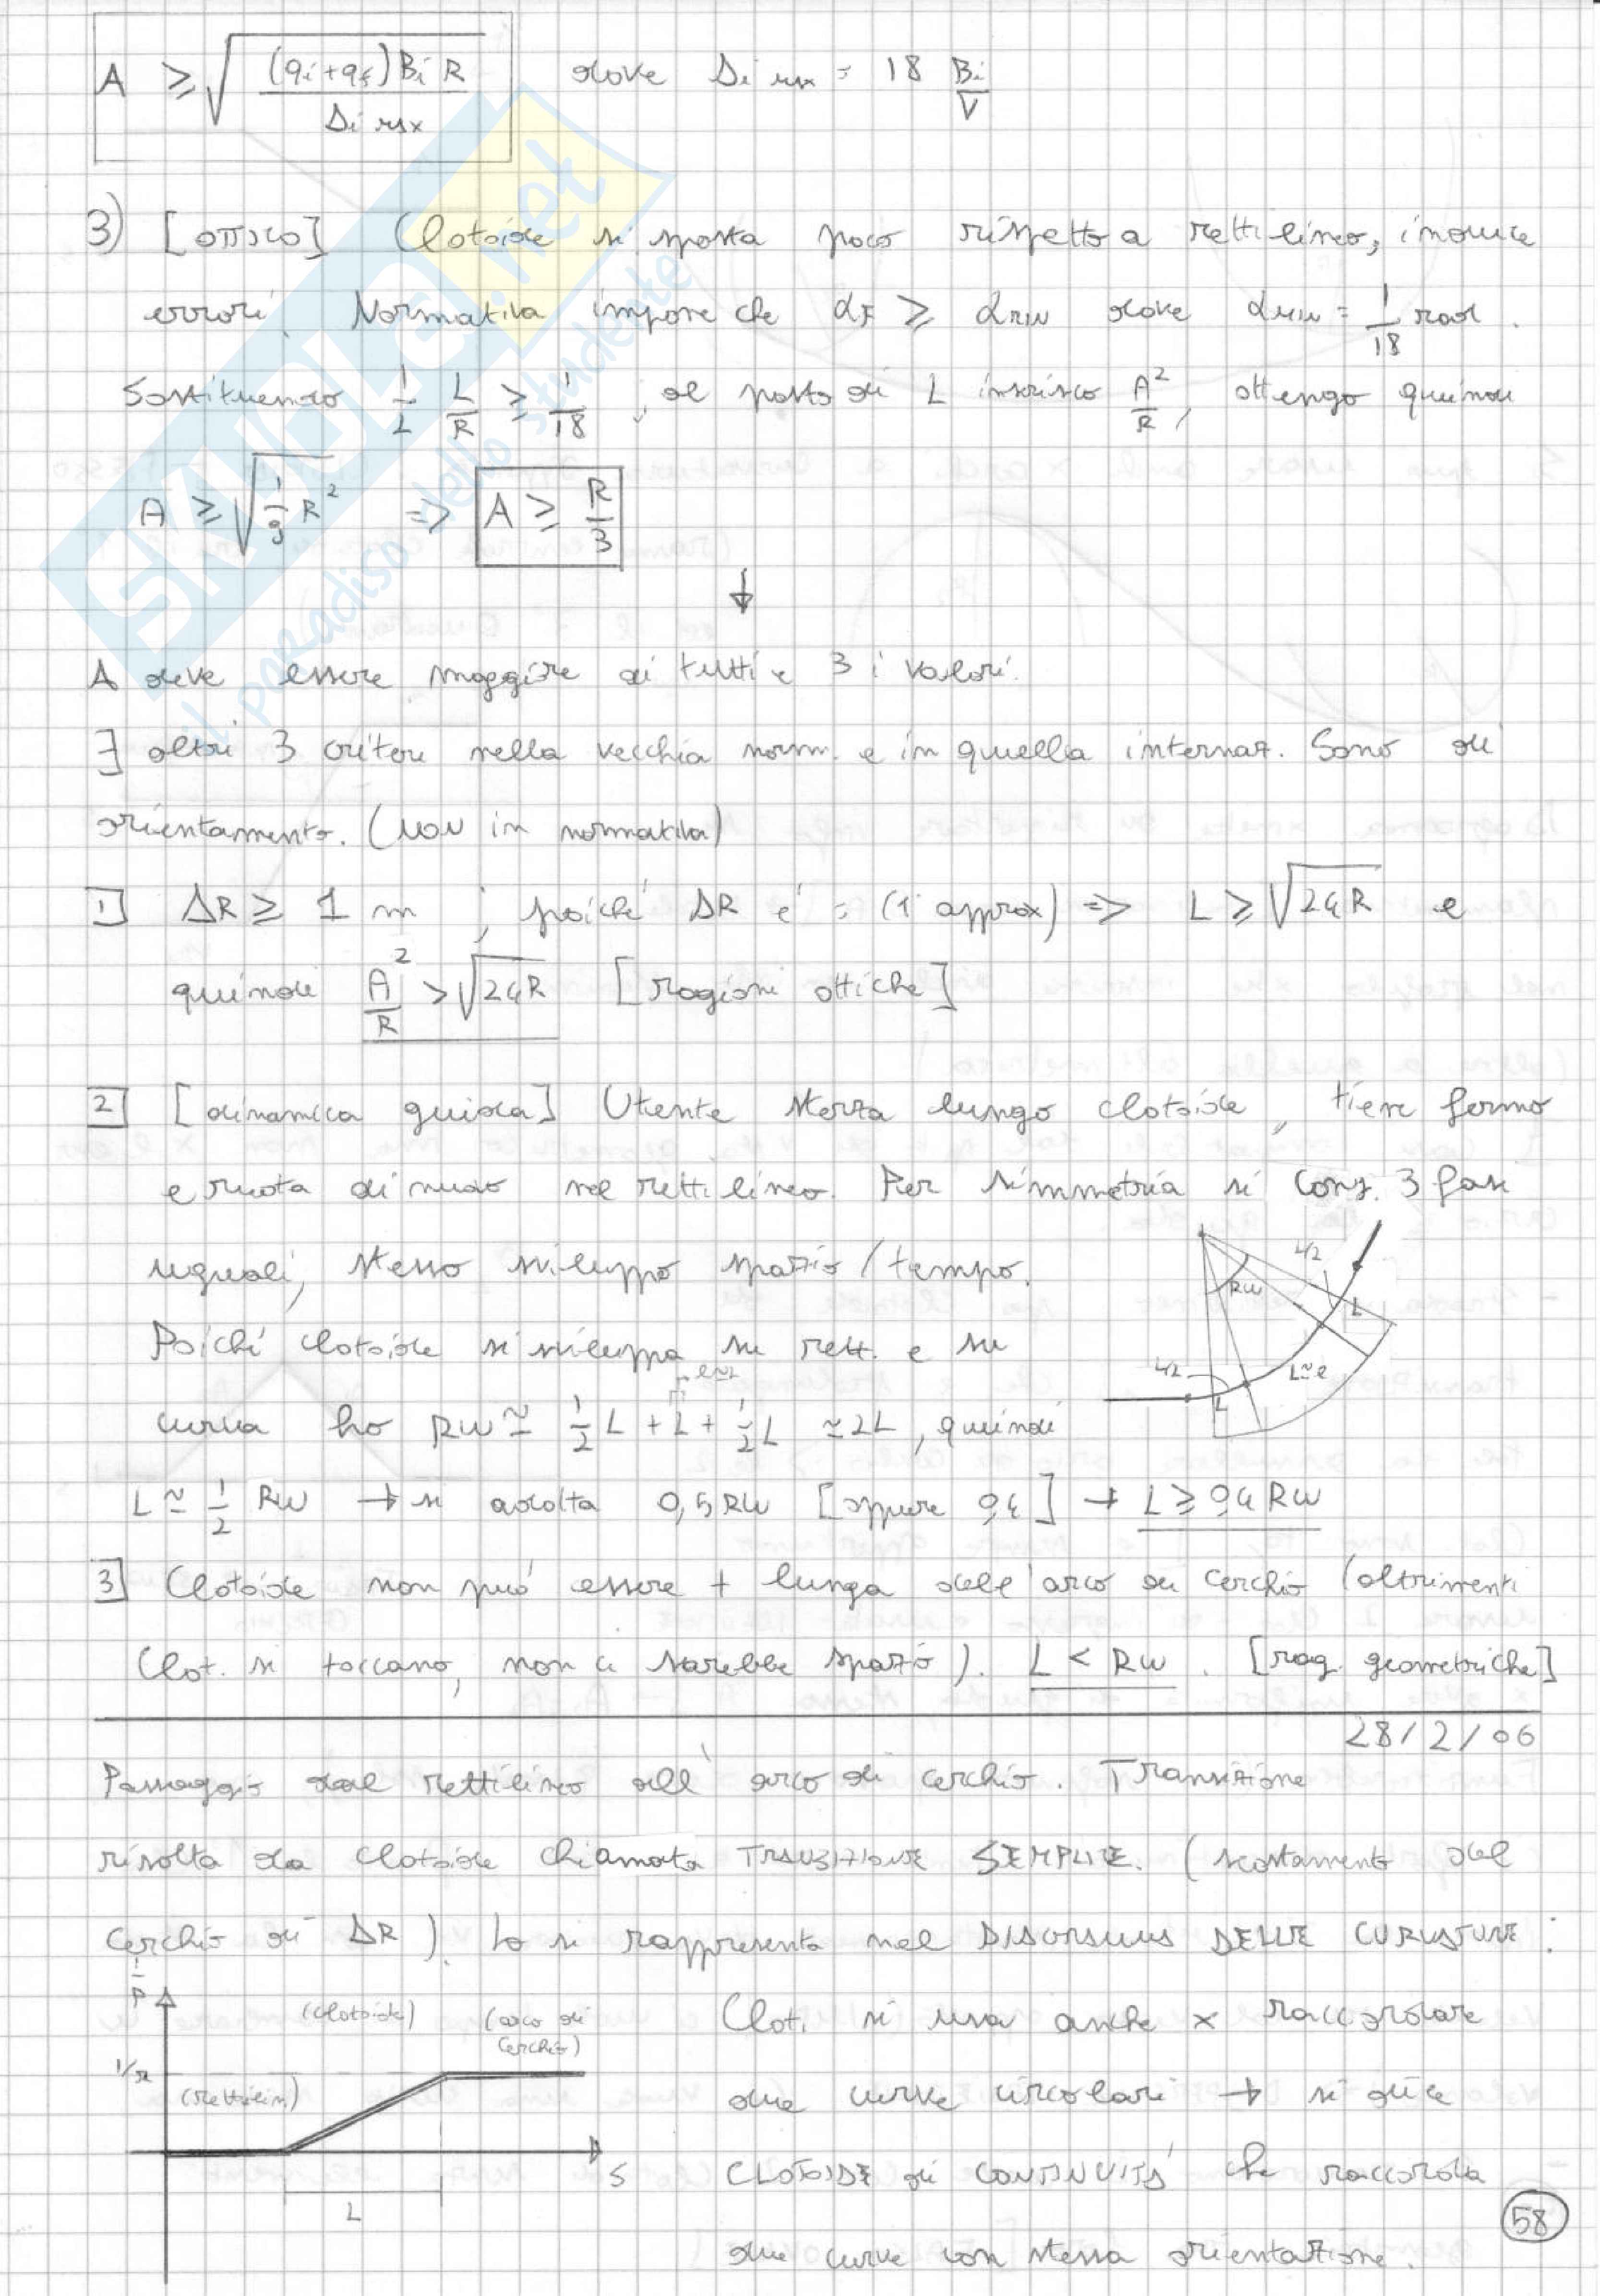 A ≥ √((qi+qf) Bi R / Δi max) dove Δi max = 18 Bi/V
3) [OTTICO] Clotoide si sposta poco rispetto a rettilineo, induce
errori. Normativa impone che αF ≥ αMIN dove αMIN = 1/18 rad.
Sostituendo 1/2 L/R ≥ 1/18, al posto di L inserisco A²/R, ottengo quindi
A ≥ √(1/9 R²) => A ≥ R/3
↓
A deve essere maggiore di tutti e 3 i valori.
∃ altri 3 criteri nella vecchia norm. e in quella internaz. Sono di
orientamento. (NON in normativa)
1] ΔR ≥ 1 m ; poiché ΔR è = (1ª approx) => L ≥ √24R e
quindi A²/R > √24R [ragioni ottiche]
2] [dinamica guida] Utente sterza lungo clotoide, tiene fermo
e ruota di nuovo nel rettilineo. Per simmetria si cons. 3 fasi
uguali, stesso sviluppo spazio/tempo.
Poiché clotoide si sviluppa su rett. e su
curva ho Rω ≃ 1/2 L + L + 1/2 L ≃ 2L, quindi
L ≃ 1/2 Rω → si adotta 0,5 Rω [oppure 0,4] → L ≥ 0,4 Rω
Rω
L/2
L
L≃l
L/2
L
3] Clotoide non può essere + lunga dell'arco di cerchio (altrimenti
Clot. si toccano, non ci sarebbe spazio). L < Rω. [rag. geometriche]
28/2/06
Passaggio dal rettilineo all'arco di cerchio. Transizione
risolta da clotoide chiamata TRANSIZIONE SEMPLICE. (scostamento del
cerchio di ΔR). Lo si rappresenta nel DIAGRAMMA DELLE CURVATURE:
1/ρ
(clotoide) (arco di
cerchio)
1/R
(rettilin)
S
L
Clot. si usa anche x raccordare
due curve circolari → si dice
CLOTOIDE di CONTINUITÀ che raccorda
due curve con stessa orientazione.
58
SKUOLA.net
il paradiso dello studente